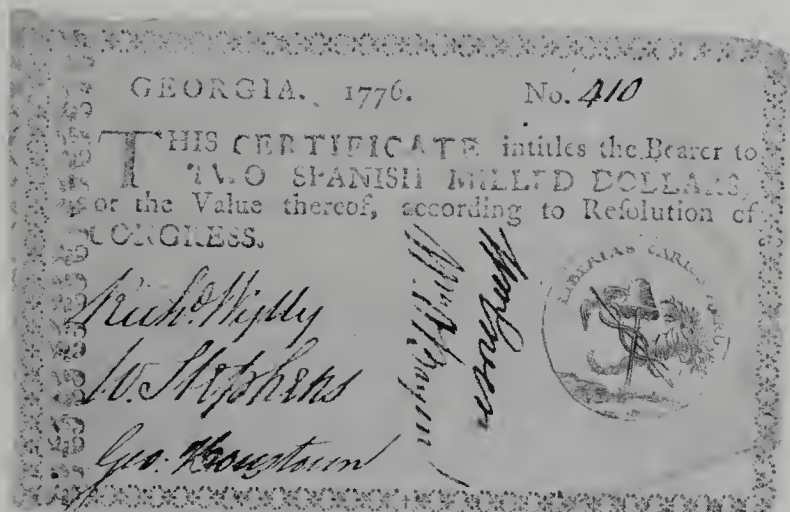 GEORGIA. 1776. No. 410
THIS CERTIFICATE intitles the Bearer to
TWO SPANISH MILLED DOLLARS,
or the Value thereof, according to Reſolution of
CONGRESS.
Richd. Wylly
W. Stephens
Geo. Houstoun
LIBERTAS CARIOR AURO